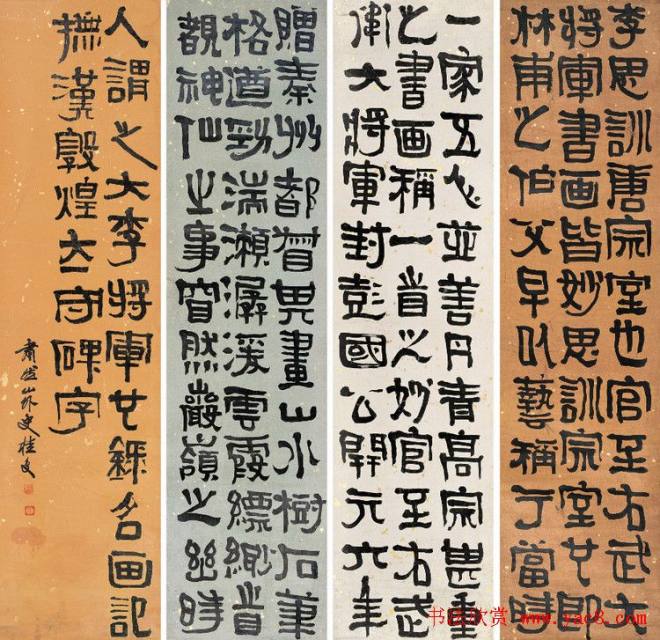 李思訓唐宗室也官至右武大
將軍書画皆妙思訓宗室也即
林甫之伯父早以藝稱于當時
一家五人並善丹青高宗甚重
之書画稱一旹之妙官至右武
衛大將軍封彭國公開元六年
贈秦州都督其畫山水樹石筆
格遒勁湍瀨潺湲雲霞縹緲旹
覩神仙之事窅然巖嶺之幽時
人謂之大李將軍也錄名画記
撫漢敦煌太守碑字
肅然山外史桂
书法欣赏 www.yac8.com